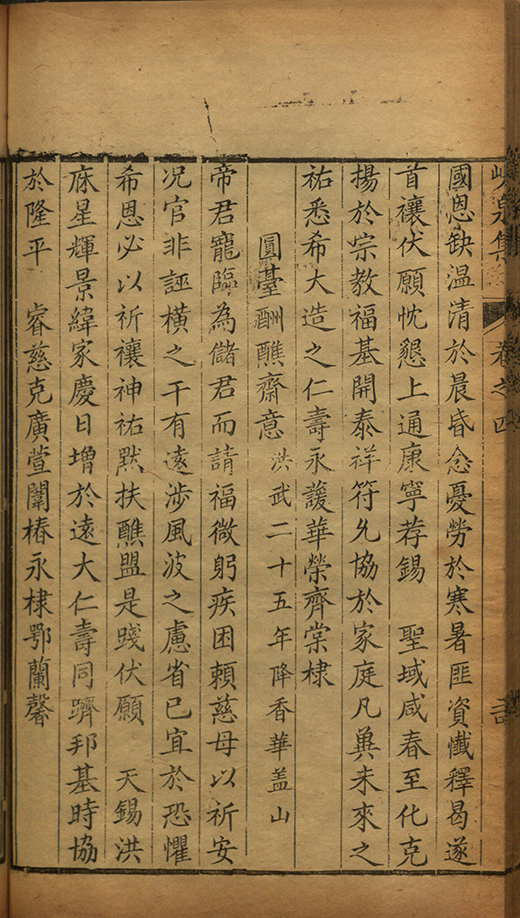 峴泉集 卷之四
國恩缺温凊於晨昏念憂勞於寒暑匪資懺釋曷遂
首禳伏願忱懇上通康寧荐錫　聖域咸春至化克
揚於宗教福基開泰祥符允協於家庭凡兾未來之
祐悉希大造之仁壽永護華榮齊棠棣
圓臺酬醮齋意 洪武二十五年降香華盖山
帝君寵臨為儲君而請福微躬疾困頼慈母以祈安
况官非誣横之干有遠涉風波之慮省已宜於恐懼
希恩必以祈禳神祐黙扶醮盟是踐伏願　天錫洪
庥星輝景緯家慶日增於遠大仁壽同躋邦基時協
於隆平　睿慈克廣萱闈椿永棣鄂蘭馨